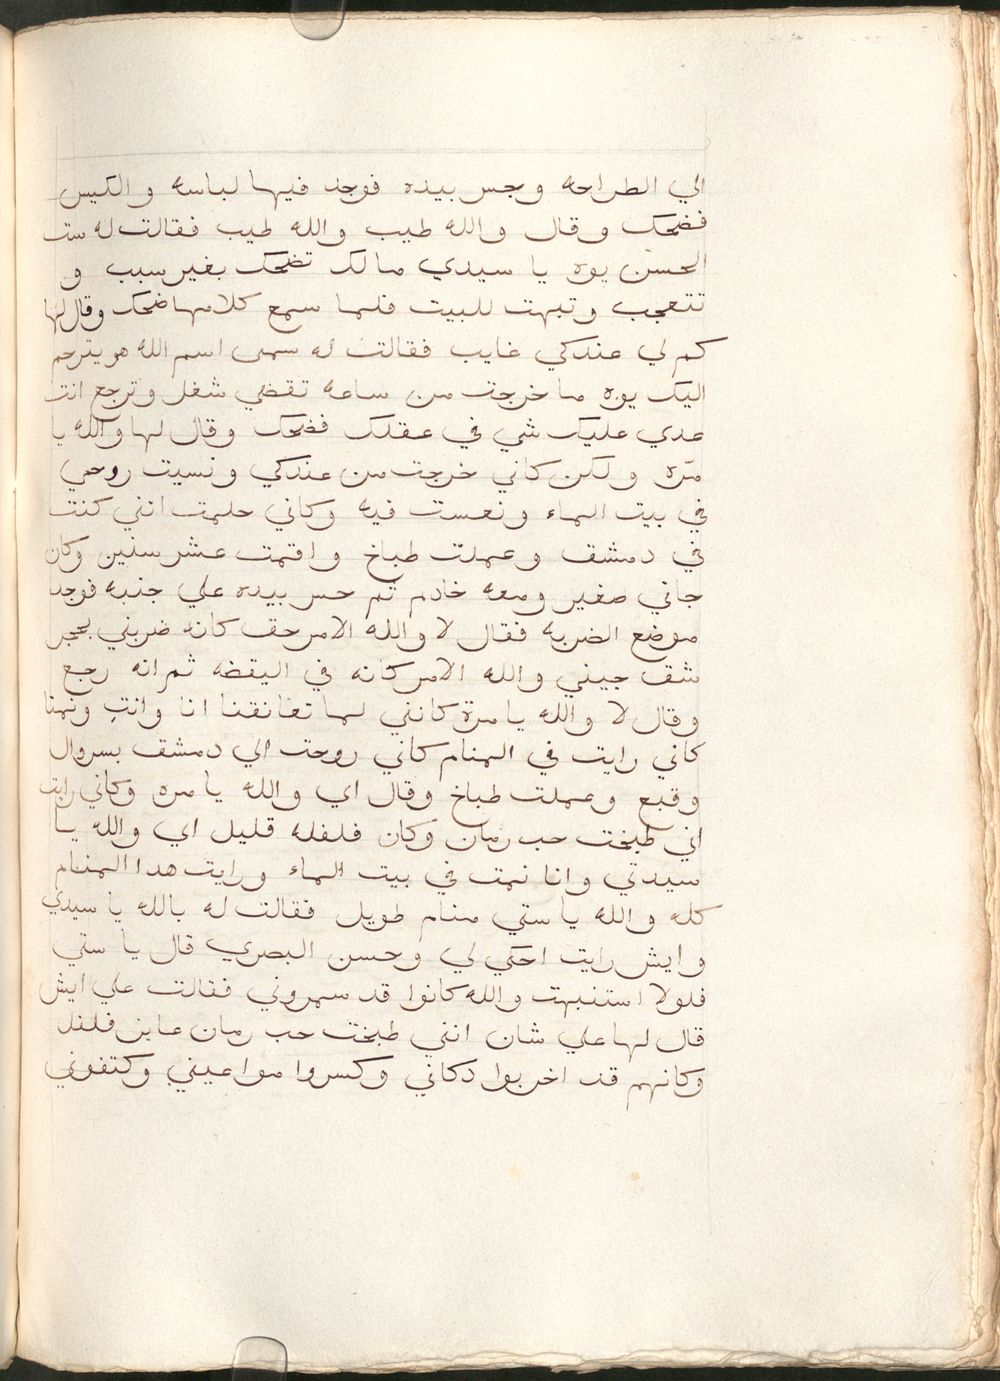 الي الطراحه وجس بيده فوجد فيها لباسه والكيس
فضحك وقال والله طيب والله طيب فقالت له ست
الحسن يوه يا سيدي مالك تضحك بغير سبب و
تتعجب وتبهت للبيت فلما سمع كلامها ضحك وقال لها
كم لي عندكي غايب فقالت له سمى اسم الله هو يترحم
اليك يوه ما خرجت من ساعه تقضي شغل وترجع انت
عدي عليك شي في عقلك فضحك وقال لها والله يا
مرّه ولكن كاني خرجت من عندكي ونسيت روحي
في بيت الماء ونعست فيه وكاني حلمت انني كنت
في دمشق وعملت طباخ واقمت عشر سنين وكان
جاني صغير ومعه خادم ثم حس بيده علي جنبه فوجد
موضع الضربه فقال لا والله الامر حق كانه ضربني بحجر
شق جبيني والله الامر كانه في اليقضه ثم انه رجع
وقال لا والله يا مرة كانني لما تعانقنا انا وانتِ ونمنا
كاني رايت في المنام كاني روحت الي دمشق بسروال
وقبع وعملت طباخ وقال اي والله يا مره وكاني رايت
اني طبخت حب رمان وكان فلفله قليل اي والله يا
سيدتي وانا نمت في بيت الماء ورايت هدا المنام
كله والله يا ستي منام طويل فقالت له بالله يا سيدي
وايش رايت احكي لي وحسن البصري قال يا ستي
فلولا استنبهت والله كانوا قد سمروني فقالت علي ايش
قال لها علي شان انني طبخت حب رمان عايز فلفل
وكانهم قد اخربوا دكاني وكسروا مواعيني وكتفوني